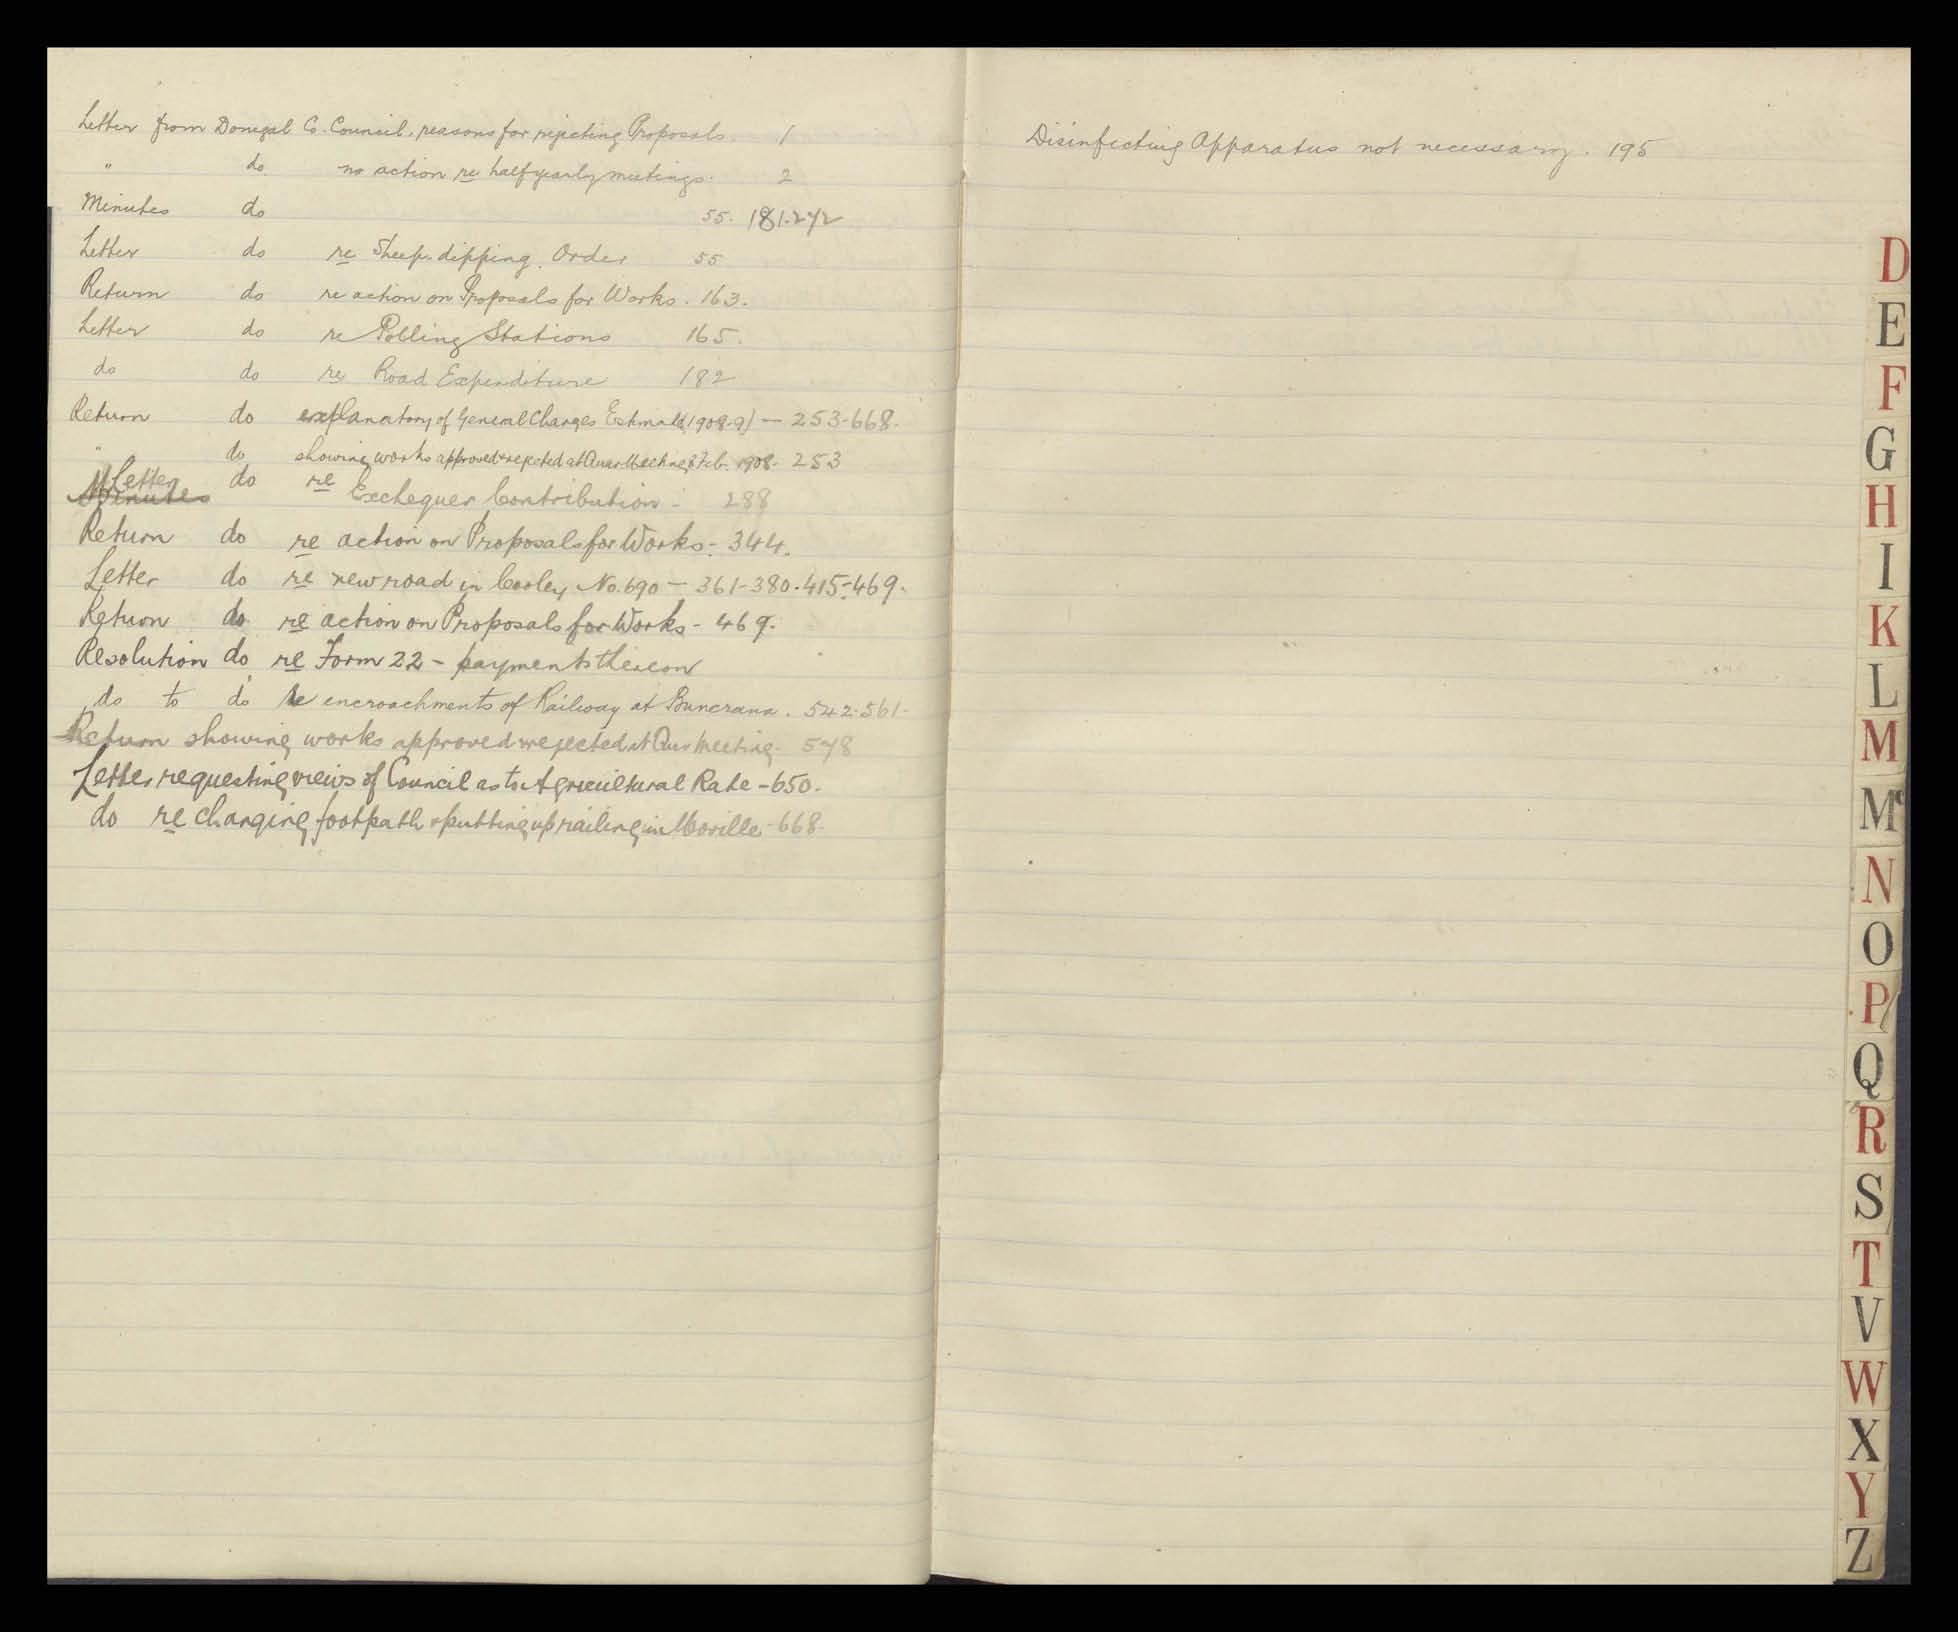 Letter from Donegal Co. Council, reasons for rejecting Proposals. 1
" do. no action re half yearly meetings. 2
Minutes do 55. 181. 242
Letter do re Sheep-dipping Order 55
Return do re action on Proposals for Works. 163.
Letter do re Polling Stations 165.
do do re Road Expenditure 182
Return do explanatory of General Charges Estimate (1908-9) — 253-668.
" do showing works approved & rejected at Quar Meeting Feb. 1908- 253
Letter do re Exchequer Contribution - 288
Minutes
Return do re action on Proposals for Works - 344.
Letter do re new road in Cooley No. 690 — 361-380. 415-469.
Return do re action on Proposals for Works - 469.
Resolution do re Form 22 - payments thereon
do to do re encroachments of Railway at Buncrana. 542-561-
Return showing works approved & rejected at Quar Meeting- 578
Letter requesting views of Council as to Agricultural Rate - 650.
do re changing footpath & putting up railing in Moville - 668.
Disinfecting Apparatus not necessary. 195
D
E
F
G
H
I
K
L
M
Mc
N
O
P
Q
R
S
T
V
W
X
Y
Z